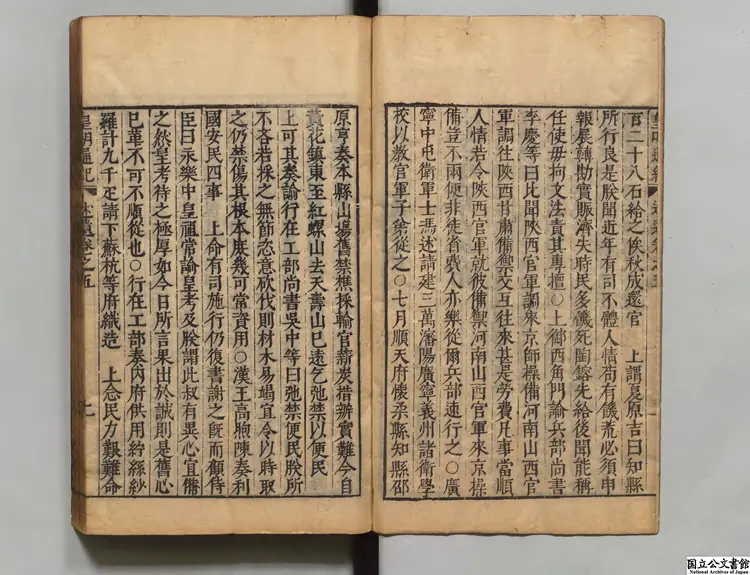 百二十八石給之俟秋成還官　上謂夏原吉曰知縣
所行良是朕聞近年有司不體人情苟有饑荒必須申
報展轉勘實賑濟失時民多饑死陶鎔先給後聞能稱
任使毋拘文法責其專擅○上御西角門諭兵部尚書
李慶等曰比聞陝西官軍調來京師操備河南山西官
軍調往陝西甘肅備禦交互往來甚是勞費凡事當順
人情若令陝西官軍就彼備禦河南山西官軍來京操
備豈不兩便非徒省費人亦樂從爾兵部速行之○廣
寧中屯衛軍士馮述請建三萬瀋陽廣寧義州諸衛學
校以教官軍子弟從之○七月順天府懷柔縣知縣邵
原亨奏本縣山場舊禁樵採輸官薪炭措辦實難今自
黃花鎮東至紅螺山去天壽山已遠乞弛禁以便民
上可其奏諭行在工部尚書吳中等曰弛禁便民朕所
不吝若採之無節恣意砍伐則材木易竭宜令以時取
之仍禁傷其根本庶幾可常資用○漢王高煦陳奏利
國安民四事　上命有司施行仍復書謝之既而顧侍
臣曰永樂中皇祖常諭皇考及朕謂此叔有異心宜備
之然皇考待之極厚如今日所言果出於誠則是舊心
已革不可不順從也○行在工部奏內府供用紵絲紗
羅計九千疋請下蘇杭等府織造　上念民力艱難命
皇明通紀
述遺卷之五
國立公文書館
National Archives of Japan